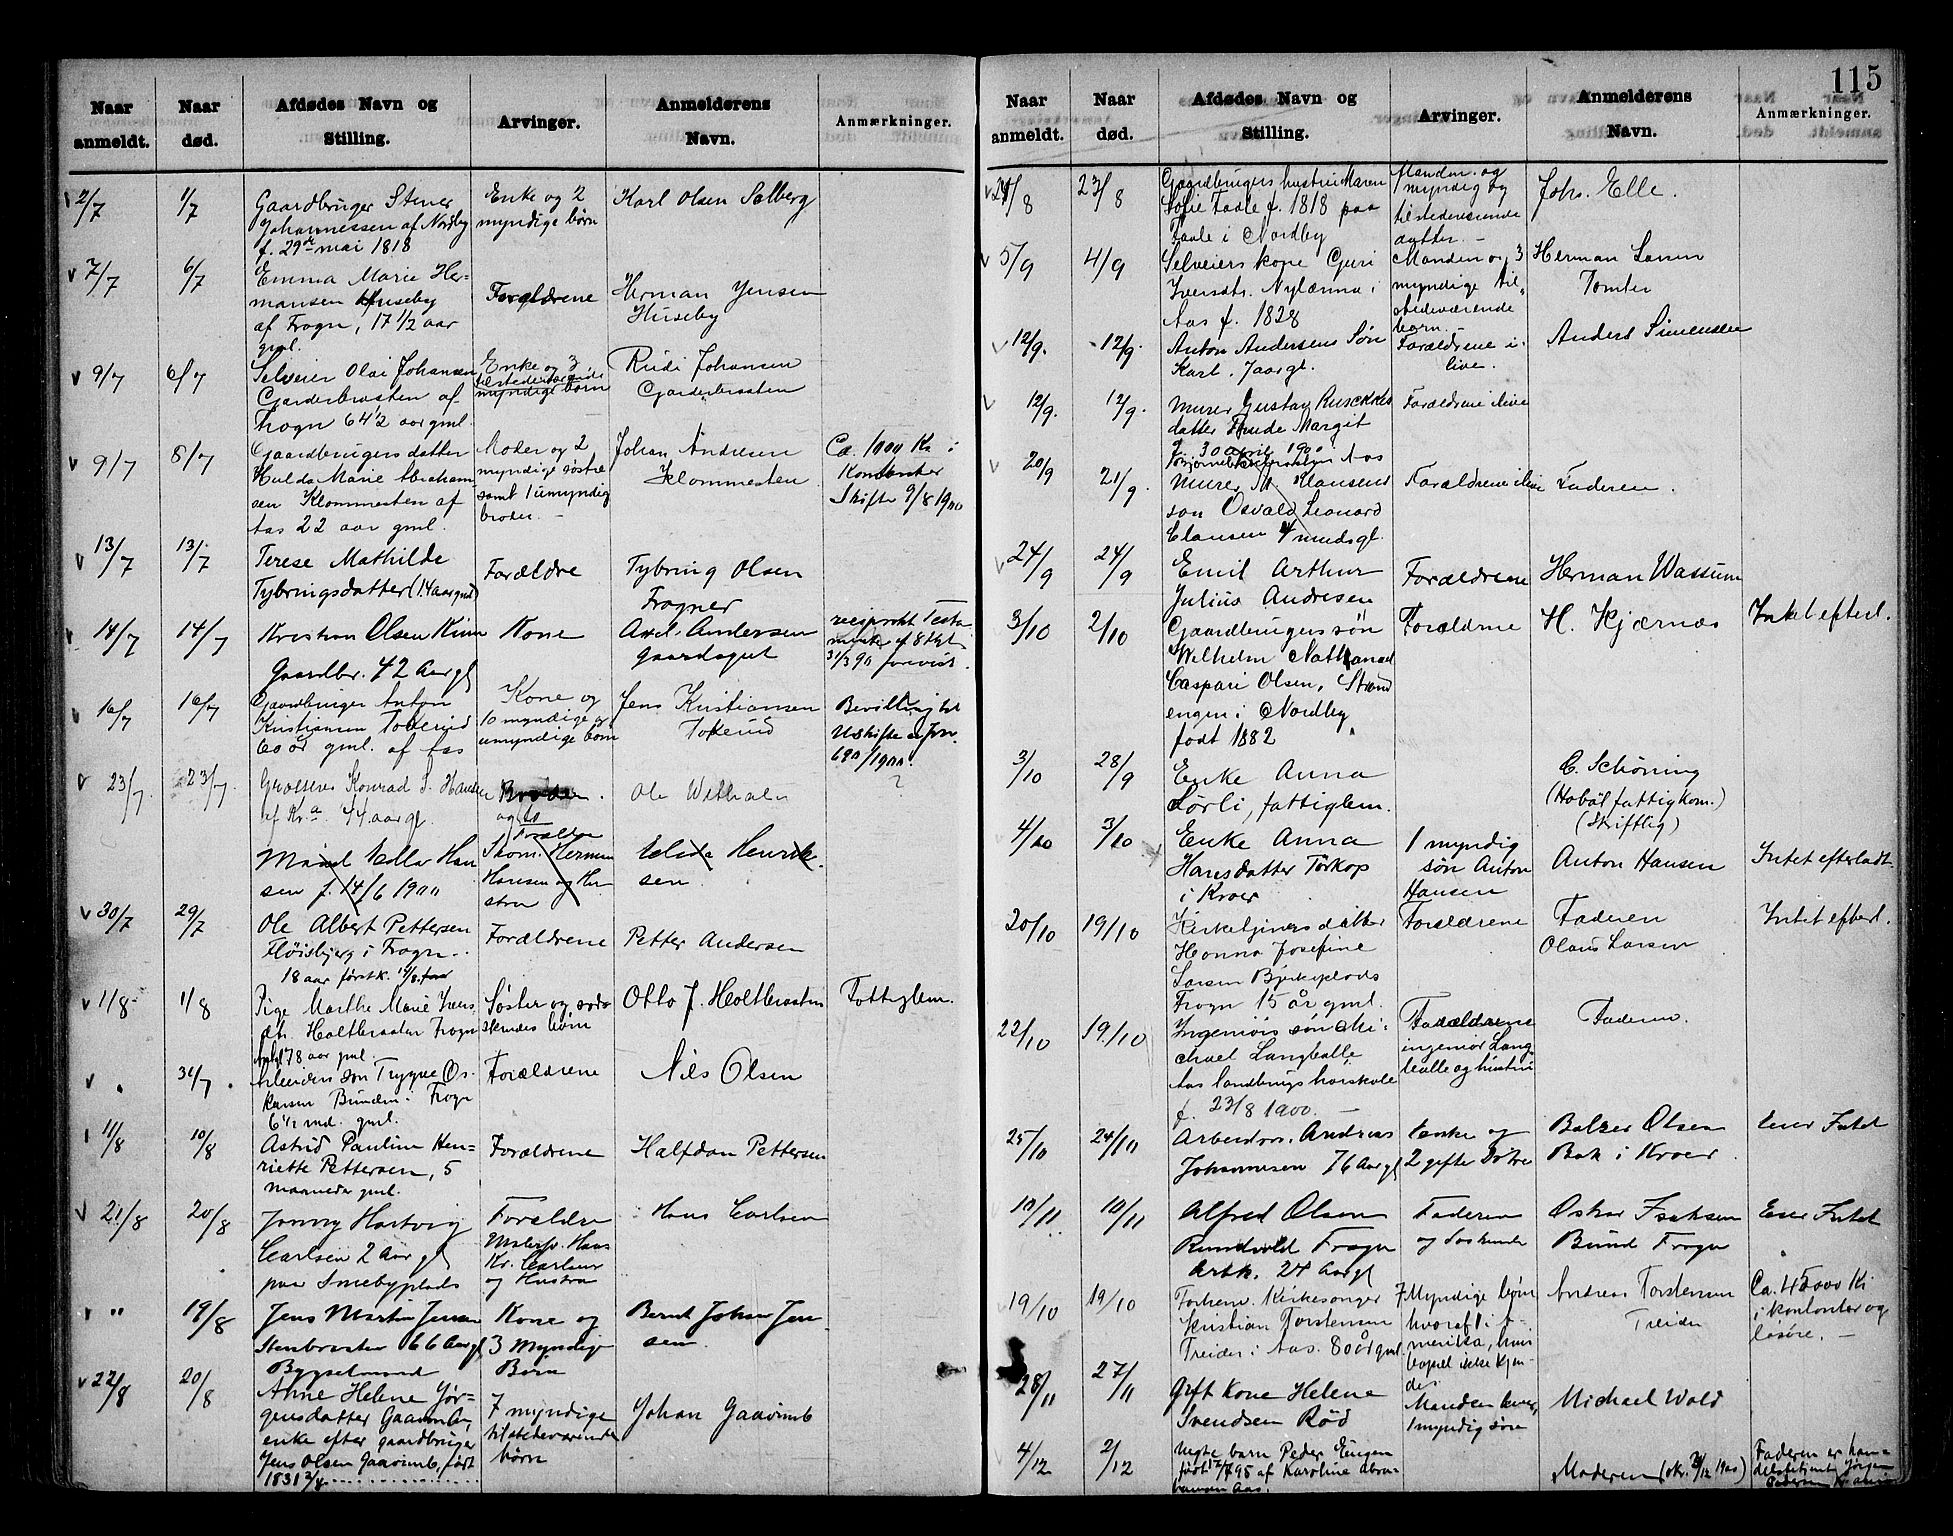 115
Naar anmeldt.
Naar død.
Afdødes Navn og Stilling.
Arvinger.
Anmelderens Navn.
Anmærkninger.
2/7
1/7
Gaardbruger Stener
Johannessen af Nordby
f. 29de mai 1818
Enke og 2
myndige børn
Karl Olsen Solberg
7/7
6/7
Emma Marie Her-
mansen Huseby
af Frogn, 17 1/2 aar
gml.
Forældrene
Herman Jensen
Huseby
9/7
6/7
Selveier Olai Johansen
Garderbraaten af
Frogn 64 1/2 aar gml.
Enke og 3
myndige børn
Johansen
Garderbraaten
9/7
8/7
Gaardbrugers datter
Hulda Marie Abraham-
sen Klommesten af
Aas 22 aar gml.
Moder og 2
myndige søstre
samt 1 umyndig
broder.
Johan Andresen
Klommesten
Ca. 1000 Kr. i
Kontanter
Skifte 9/8 1900
13/7
13/7
Terese Mathilde
Tybringsdatter (14 aar gml)
Forældre
Tybring Olsen
Frogner
14/7
14/7
Kristian Olsen
Gaardbr. 42 Aar gl
Kone
Axel Andersen
31/3 90 forevist.
16/7
16/7
Gaardbruger Anton
Kristiansen
60 år gml. af Aas
Kone og
10 myndige og
umyndige børn
Jens Kristiansen
Bevilling til
Uskifte
690/1900
23/7
23/7
Konrad S. Hansen
af Kr.a 44 aar gl.
og
Forældre
Ole Wilhelm
?
Han
sen f. 14/6 1900
Herman
Hansen og Hu-
stru
Henrik-
sen
30/7
29/7
Ole Albert Pettersen
Fløisbjerg i Frogn.
18 aar
Forældrene
Petter Andersen
1/8
1/8
Pige Marthe Marie Ivers
dt. Holtbraaten Frogn
78 aar gml.
Søster og søds-
kendes børn
Otto J. Holtbraaten
Fattiglem.
31/7
Arbeiders søn Trygve Os-
karsen Bunden i Frogn
6 1/2 md. gml.
Forældrene
Nils Olsen
11/8
10/8
Astrid Pauline Hen-
riette Pettersen, 5
maaneder gml.
Forældrene
Halfdan Pettersen
21/8
20/8
Jonny Hartvig
Carlsen 2 Aar gl
paa Smebyplads
Forældre
Hans
Kr. Carlsen
og Hustru
Hans Carlsen
"
19/8
Jens Martin Jensen
Stenbraaten 66 Aar gl
Bygselmand
Kone og
3 Myndige
Børn
Bernt Johan Jen-
sen.
22/8
20/8
Anne Helene Jør-
gensdatter Gaavimb,
enke efter gaardbruger
Jens Olsen Gaavimb, født
1831
7 myndige
tilstedeværende
børn
Johan Gaavimb
Naar anmeldt.
Naar død.
Afdødes Navn og Stilling.
Arvinger.
Anmelderens Navn.
Anmærkninger.
24/8
23/8
Gaardbrugers hustru Maren
Sofie Faale f. 1818 paa
Faale i Nordby
Manden og
myndig og
tilstedeværende
datter.
Johs. Elle.
5/9
4/9
Selveiers kone Guri
Iversdtr. Nylænna i
Aas f. 1828
Manden og 3
myndige til-
stedeværende
børn.
Herman Larsen
Tomter
12/9.
12/9.
Anton Andersens Søn
Karl.
Forældrene i
live.
Anders Simensen
12/9.
12/9.
Murer Gustav
datter Margit
f. 30 april 1900
Forældrene ilive
20/9
21/9.
Aas
Murer Klausens
søn Osvald Leonard
Clausen 4 mnds gl.
Forældrene ilive
Faderen.
24/9
24/9
Emil Arthur
Julius Andresen
Forældrene
Herman Wassum
3/10
2/10
Gaardbrugers søn
Wilhelm Nathanael
Caspari Olsen, Strand
engen i Nordby
født 1882
Forældrene
H. Kjærnes
Intet efterl.
3/10
28/9
Enke Anna
Sørli, fattiglem.
C. Schöning
(Hobøl fattigkom.)
(Skriftlig)
4/10
3/10
Enke Anna
Hansdatter Torkop
i Kroer
1 myndig
søn Anton
Hansen
Anton Hansen
Intet efterladt
20/10
19/10
Kirketjeners datter
Hanna Josefine
Larsen Bjerkeplads
Frogn 15 år gml.
Forældrene
Faderen
Olaus Larsen
Intet efterl.
22/10
19/10
Ingeniørs søn Mi-
chael Langballe,
Aas landbrugshøiskole
f. 23/8 1900.
Forældrene
ingeniør Lang
balle og hustru
Faderen.
25/10
24/10
Arbeidsm. Andreas
Johannesen 76 Aar gl
Enke og
2 gifte Døtre
Balzer Olsen
Bak i Kroer.
Eier Intet
10/11
10/11
Alfred Olsen
Rundvold Frogn
Arbk. 24 Aar gl
Faderen
og Søskende
Oskar Isaksen
Bund Frogn
Eier Intet
19/10
19/10
Forhenv. Kirkesanger
Kristian Torstensen
Treider i Aas. 80 år gml.
7 Myndige børn
hvoraf 1 i A-
merika, hvis
bopæl ikke kjen-
des.
Andreas Torstensen
Treider
Ca. 45000 Kr
i kontanter og
løsøre.
28/11
27/11
Gift Kone Helene
Svendsen Rød
Manden lever,
1 myndig søn
Michael Wold
4/12
2/12
Uegte barn Peder Eugen
født 95 af Karoline Abra-
hamsen Aas.
Moderen
Faderen er han-
delsbetjent Jørgen
Pedersen